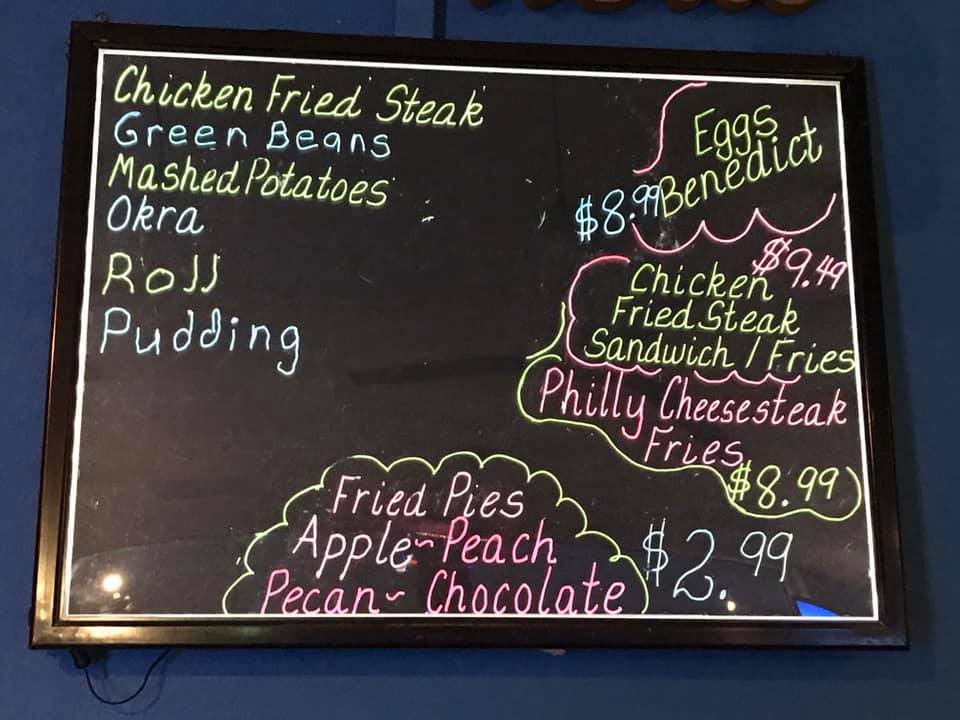 Chicken Fried Steak
Green Beans
Mashed Potatoes
Okra
Roll
Pudding
Eggs
Benedict
$8.99
$9.49
Chicken
Fried Steak
Sandwich / Fries
Philly Cheesesteak
Fries
$8.99
Fried Pies
Apple~Peach
Pecan~ Chocolate
$2.99